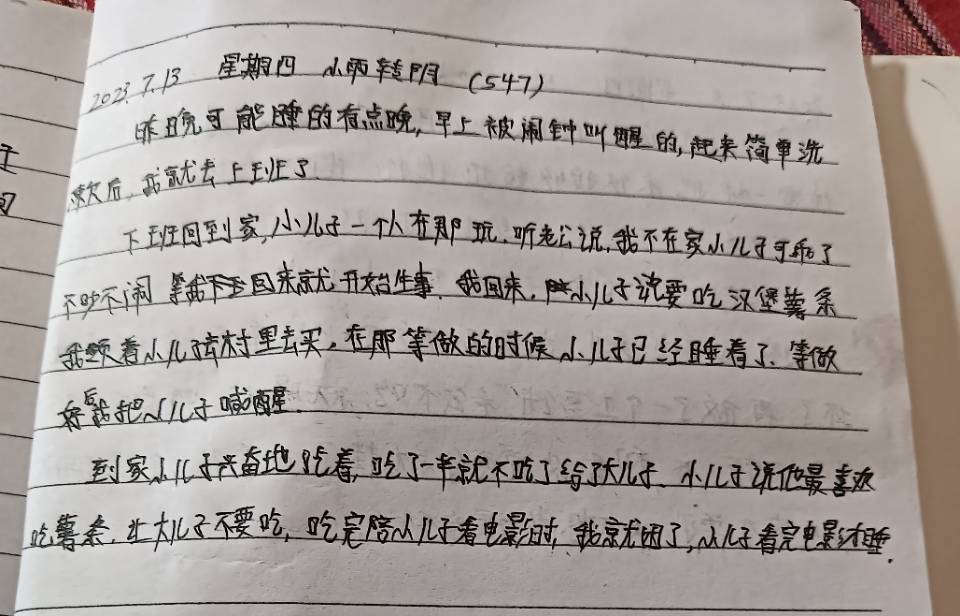 2023.7.13 星期四 小雨转阴 (547)
昨晚可能睡的有点晚,早上被闹钟叫醒的,起来简单洗
漱后,我就去上班了.
下班回到家,小儿子一个人在那玩.听老公说,我不在家小儿子可乖了
不吵不闹 等我回来就开始生事.我回来,小儿子说要吃汉堡薯条
我领着小儿子去村里去买,在那等做的时候小儿子已经睡着了.等做
好后我把小儿子喊醒.
到家小儿子兴奋地吃着,吃了一半就不吃了给了大儿子.小儿子说他最喜欢
吃薯条,让大儿子不要吃,吃完陪小儿子看电影时,我就困了,小儿子看完电影才睡.